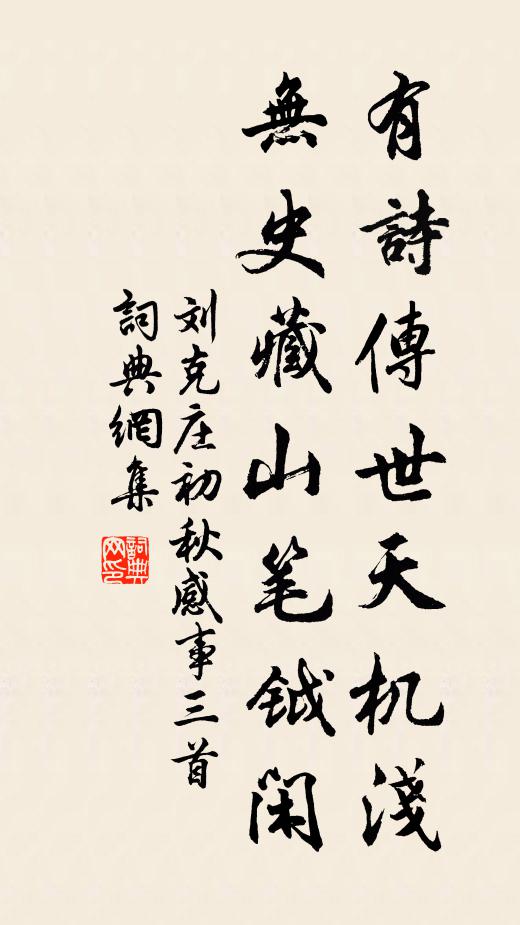 有詩傳世天机淺
無史藏山笔鉞闲
刘克庄初秋感事三首
詞典網集
詞典网印